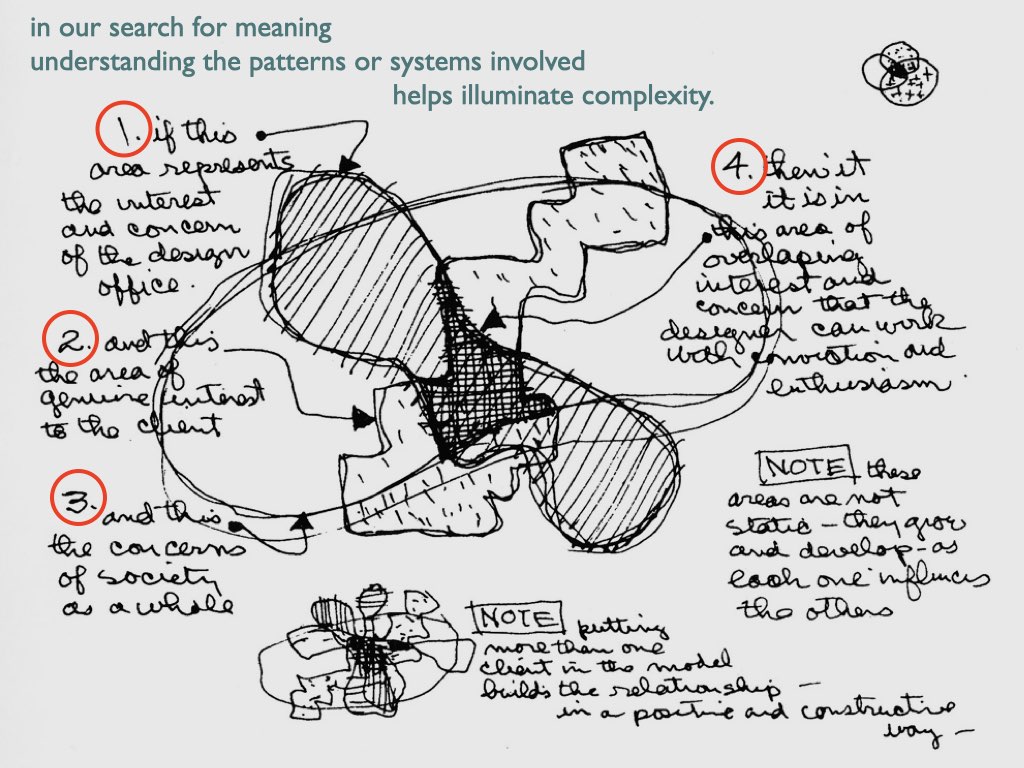 in our search for meaning
understanding the patterns or systems involved
helps illuminate complexity.
1. if this
area represents
the interest
and concern
of the design
office.
2. and this
the area of
genuine interest
to the client
3. and this
the concerns
of society
as a whole
4. then it
it is in
this area of
overlaping
interest and
concern that the
designer can work
with conviction and
enthusiasm.
NOTE these
areas are not
static — they grow
and develop - as
each one influences
the others
NOTE putting
more than one
client in the model
builds the relationship —
in a positive and constructive
way —